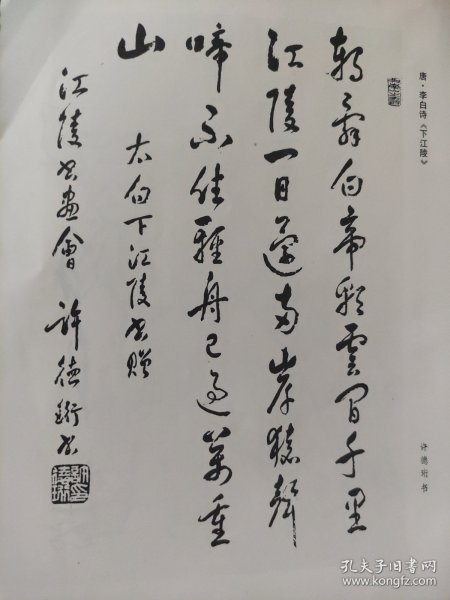 唐·李白诗《下江陵》
朝辞白帝彩雲间千里
江陵一日還两岸猿聲
啼不住轻舟已过萬重
山
太白下江陵书赠
江陵书画會 许德珩书
许德珩书
孔夫子旧书网
www.kongfz.com